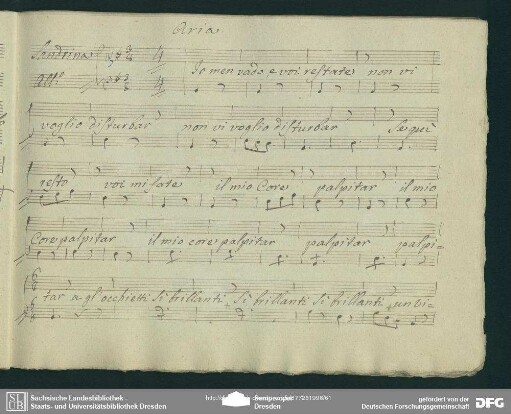 Aria
Sandrina
All.º
Io men vado e voi restate non vi
voglio disturbar non vi voglio disturbar Se qui
resto voi mi fate il mio Core palpitar il mio
Core palpitar il mio core palpitar palpitar palpi-
tar a gl'occhietti si brillanti si brillanti si brillanti un bi-
Sächsische Landesbibliothek -
Staats- und Universitätsbibliothek Dresden
gefördert von der
Deutschen Forschungsgemeinschaft
DFG